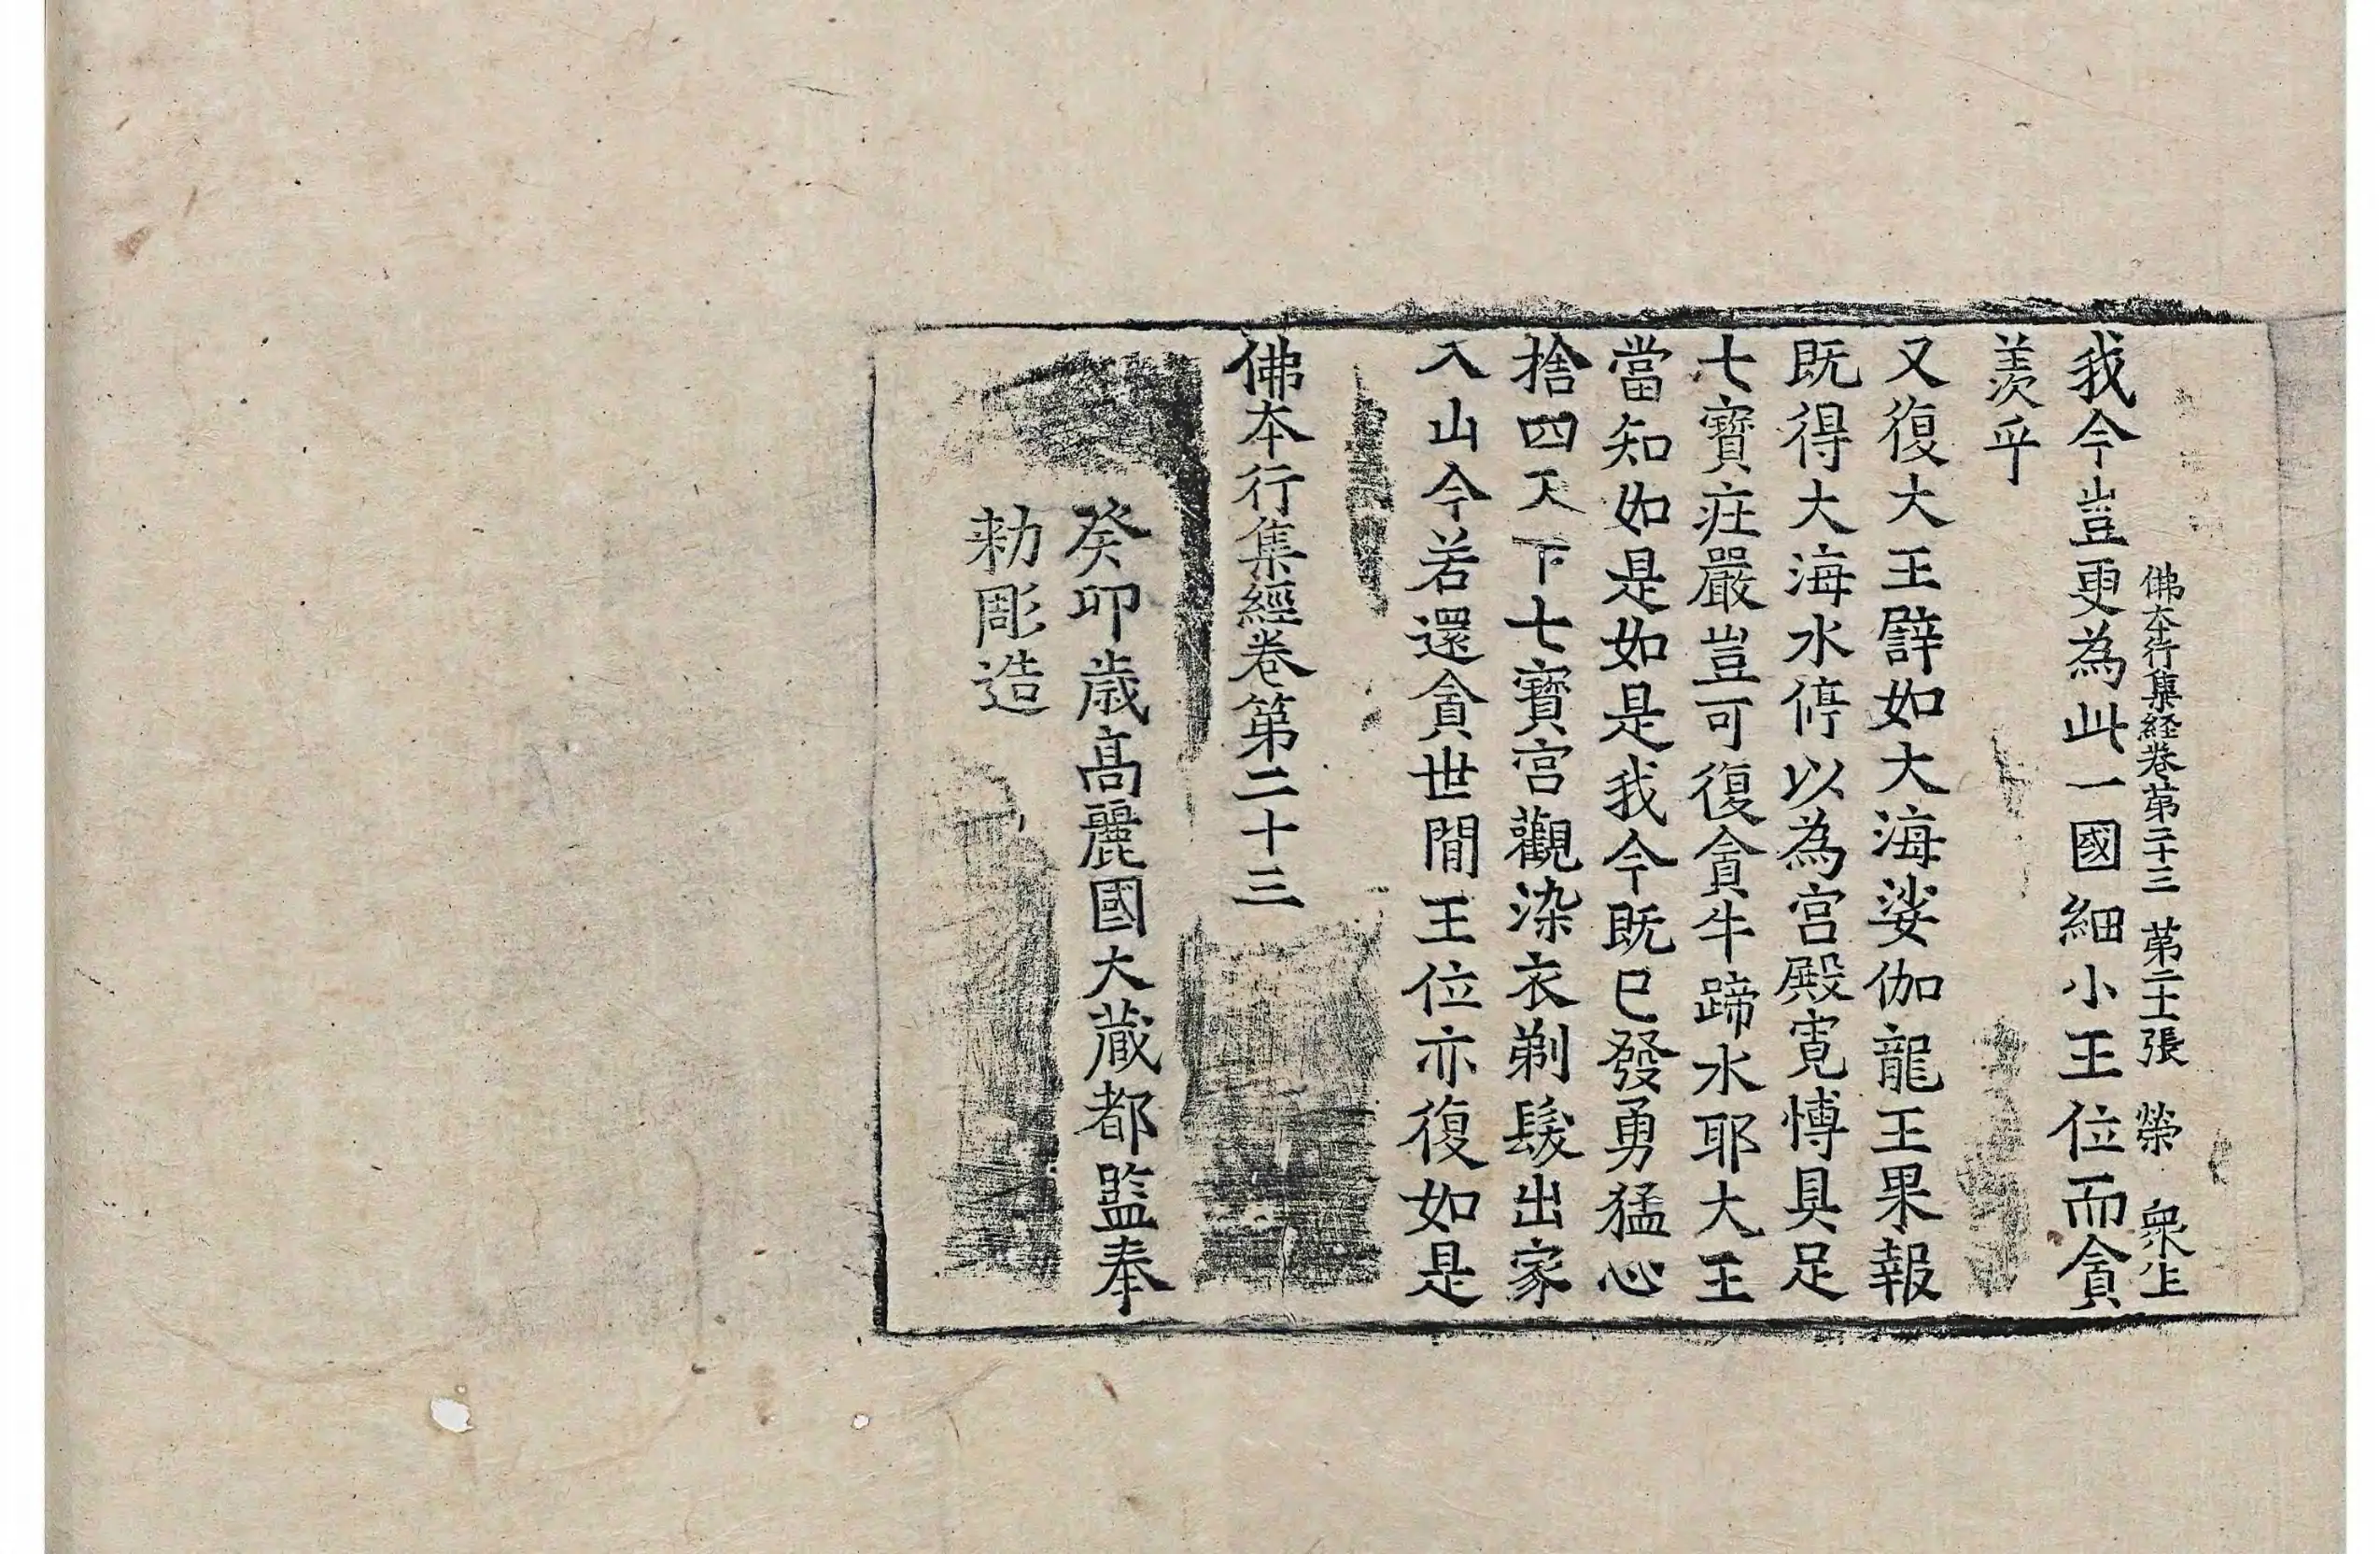 佛本行集経卷第二十三 第二十張 榮 衆上
我今豈更為此一國細小王位而貪
羨乎
又復大王譬如大海娑伽龍王果報
既得大海水停以為宮殿寬博具足
七寶疘嚴豈可復貪牛蹄水耶大王
當知如是如是我今既已發勇猛心
捨四天下七寶宮觀染衣剃髮出家
入山今若還貪世間王位亦復如是
佛本行集經卷第二十三
癸卯歲高麗國大藏都監奉
勅彫造